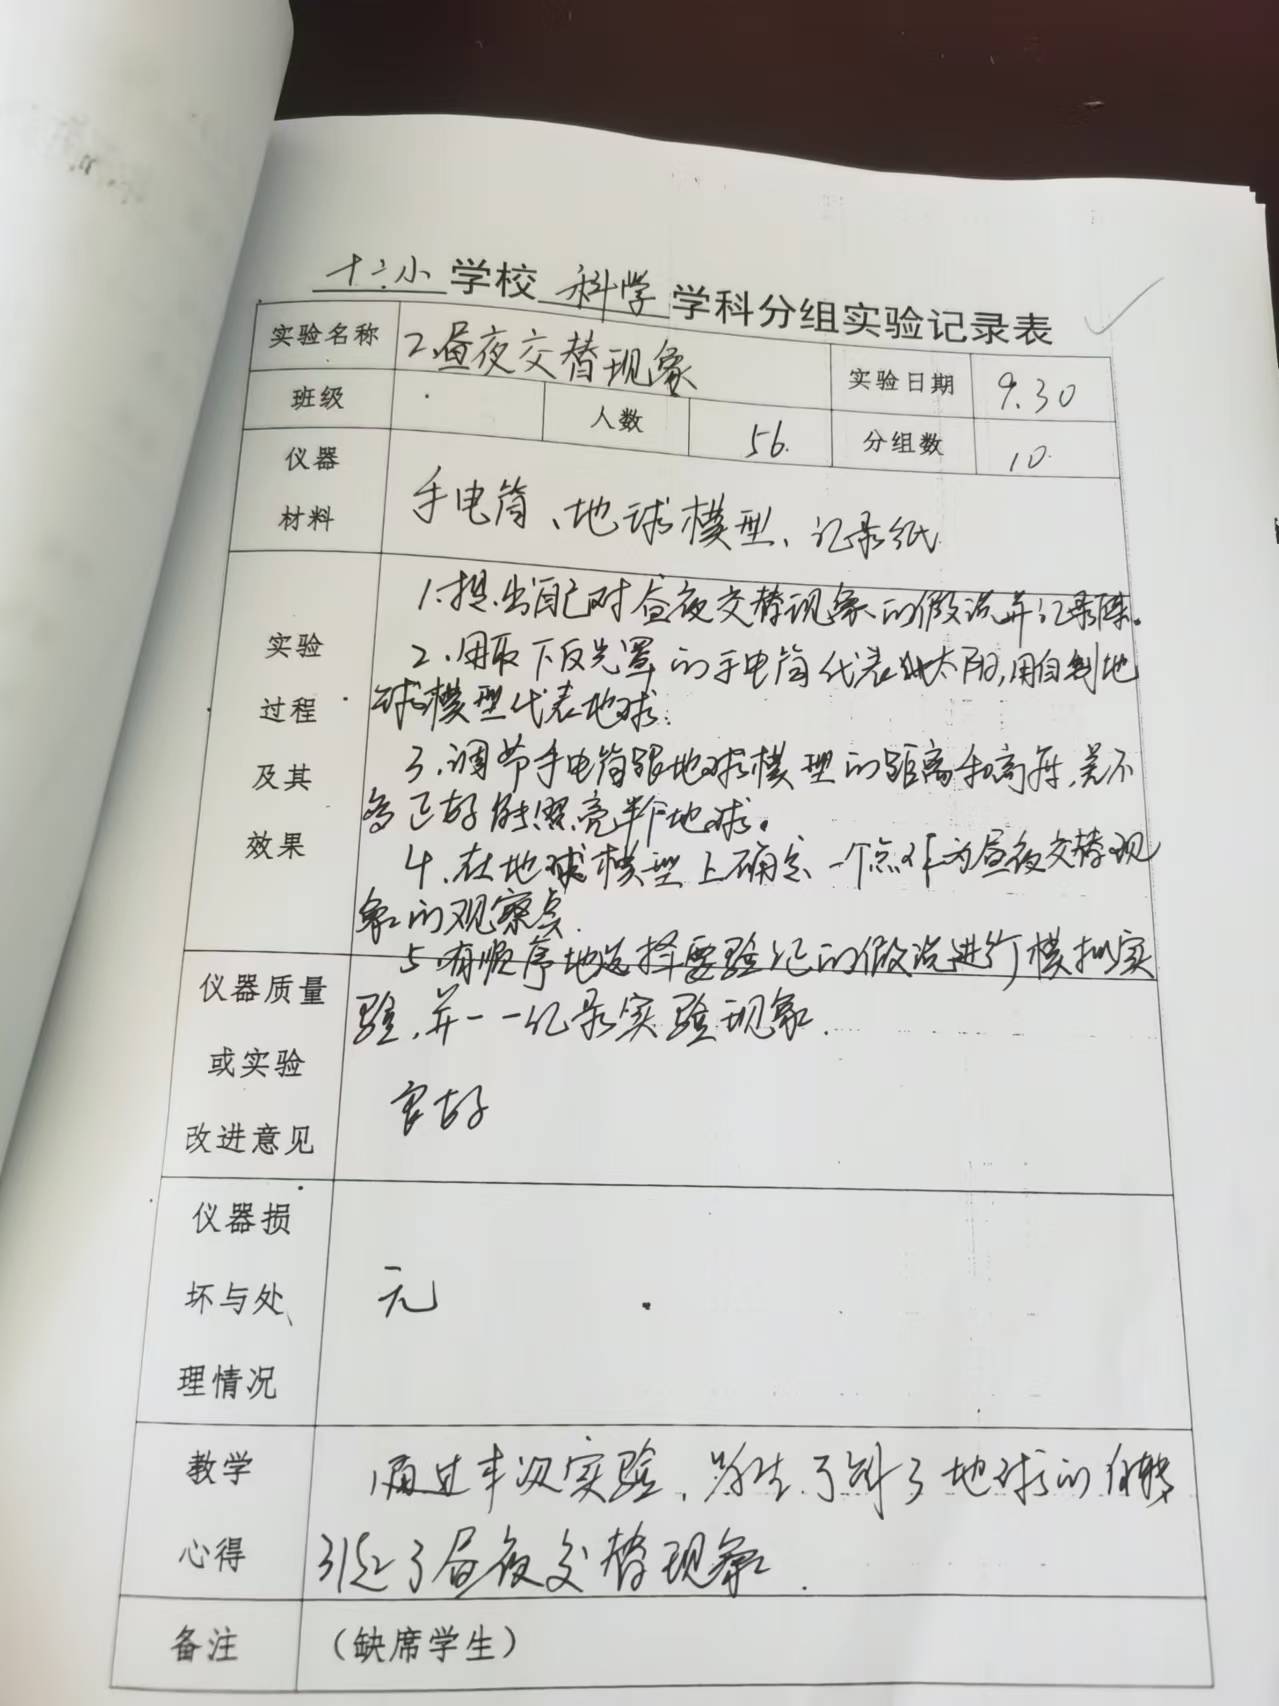 十六小学校科学学科分组实验记录表
实验名称 2.昼夜交替现象 实验日期 9.30
班级 人数 56. 分组数 10.
仪器
材料
手电筒、地球模型、记录纸
实验
过程
及其
效果
1.提出自己对昼夜交替现象的假说并记录下来。
2.用取下反光罩的手电筒代表太阳,用自制地
球模型代表地球.
3.调节手电筒跟地球模型的距离和高度,差不
多正好能照亮半个地球。
4.在地球模型上确定一个点作为昼夜交替现
象的观察点.
5.有顺序地选择要验证的假说进行模拟实
验,并一一记录实验现象.
仪器质量
或实验
改进意见
良好
仪器损
坏与处
理情况
无
教学
心得
通过本次实验,学生了解了地球的自转
引起了昼夜交替现象.
备注 (缺席学生)